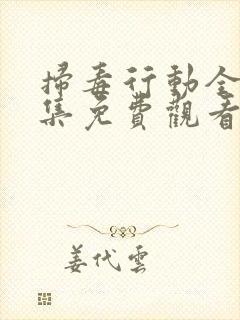 掃毒行動全
集免費觀看
姜代雲